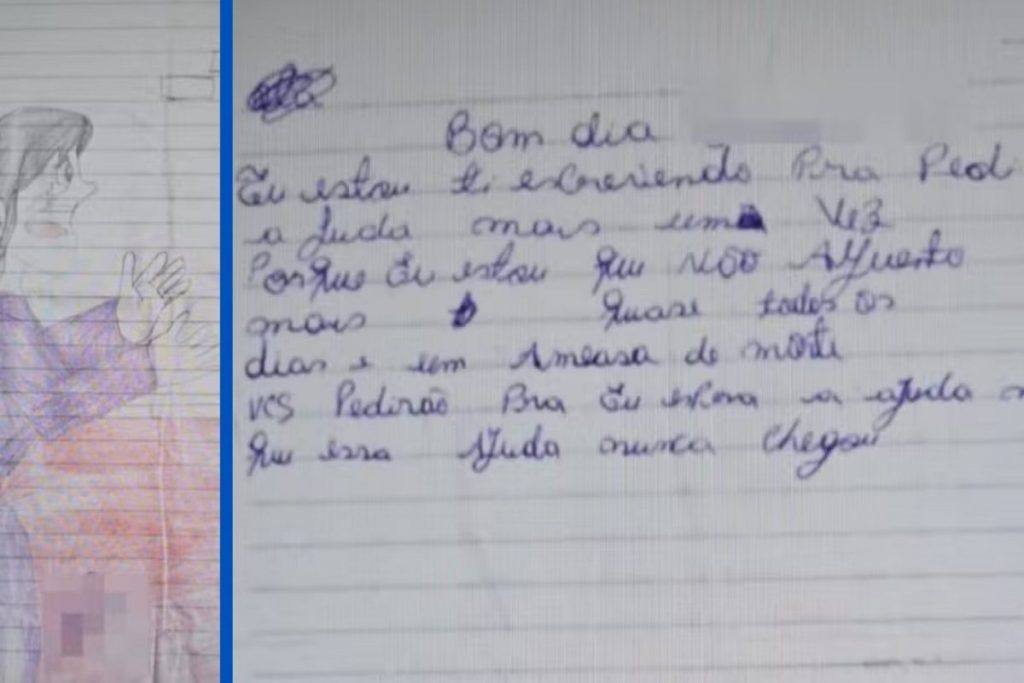 Bom dia
Eu estou ti escreviendo Pra Pedi
a Juda mais uma Vez
Porque Eu estou que NÃO AGuento
mais quase todos os
dias e um Ameasa de morte
VCS Pedirão Pra Eu a ajuda
que essa AJuda nunca chegou